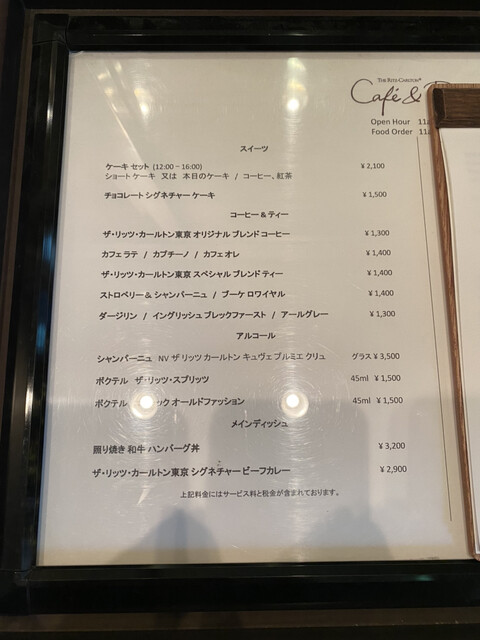 THE RITZ-CARLTON®
Café &
Open Hour 11
Food Order 11
スイーツ
ケーキ セット (12:00 – 16:00) ¥ 2,100
ショートケーキ 又は 本日のケーキ / コーヒー、紅茶
チョコレート シグネチャー ケーキ ¥ 1,500
コーヒー & ティー
ザ・リッツ・カールトン東京 オリジナル ブレンド コーヒー ¥ 1,300
カフェ ラテ / カプチーノ / カフェ オレ ¥ 1,400
ザ・リッツ・カールトン東京 スペシャル ブレンド ティー ¥ 1,400
ストロベリー & シャンパーニュ / ブーケ ロワイヤル ¥ 1,400
ダージリン / イングリッシュ ブレックファースト / アールグレー ¥ 1,300
アルコール
シャンパーニュ NV ザ リッツ カールトン キュヴェ プルミエ クリュ グラス ¥ 3,500
ボクテル ザ・リッツ・スプリッツ 45ml ¥ 1,500
ボクテル ック オールドファッション 45ml ¥ 1,500
メインディッシュ
照り焼き 和牛 ハンバーグ丼 ¥ 3,200
ザ・リッツ・カールトン東京 シグネチャー ビーフカレー ¥ 2,900
上記料金にはサービス料と税金が含まれております。